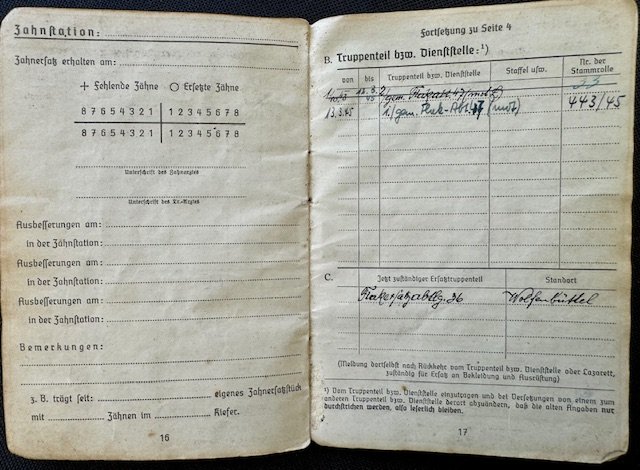 Zahnstation:
Zahnersatz erhalten am:
+ Fehlende Zähne ○ Ersetzte Zähne
8 7 6 5 4 3 2 1 | 1 2 3 4 5 6 7 8
8 7 6 5 4 3 2 1 | 1 2 3 4 5 6 7 8
Unterschrift des Zahnarztes
Unterschrift des Tr.-Arztes
Ausbesserungen am:
in der Zahnstation:
Ausbesserungen am:
in der Zahnstation:
Ausbesserungen am:
in der Zahnstation:
Bemerkungen:
z. B. trägt seit: eigenes Zahnersatzstück
mit Zähnen im Kiefer.
16
Fortsetzung zu Seite 4
B. Truppenteil bzw. Dienststelle:¹)
von bis Truppenteil bzw. Dienststelle Staffel usw. Nr. der Stammrolle
gem. Flakabt. 47 (mot)
13.3.45 1./gem. Flak-Abt. 47 (mot) 443/45
C. Jetzt zuständiger Ersatztruppenteil Standort
Flakersatzabtlg. 26 Wolfenbüttel
(Meldung dortselbst nach Rückkehr vom Truppenteil bzw. Dienststelle oder Lazarett,
zuständig für Ersatz an Bekleidung und Ausrüstung)
¹) Vom Truppenteil bzw. Dienststelle einzutragen und bei Versetzungen von einem zum
anderen Truppenteil bzw. Dienststelle derart abzuändern, daß die alten Angaben nur
durchstrichen werden, also leserlich bleiben.
17